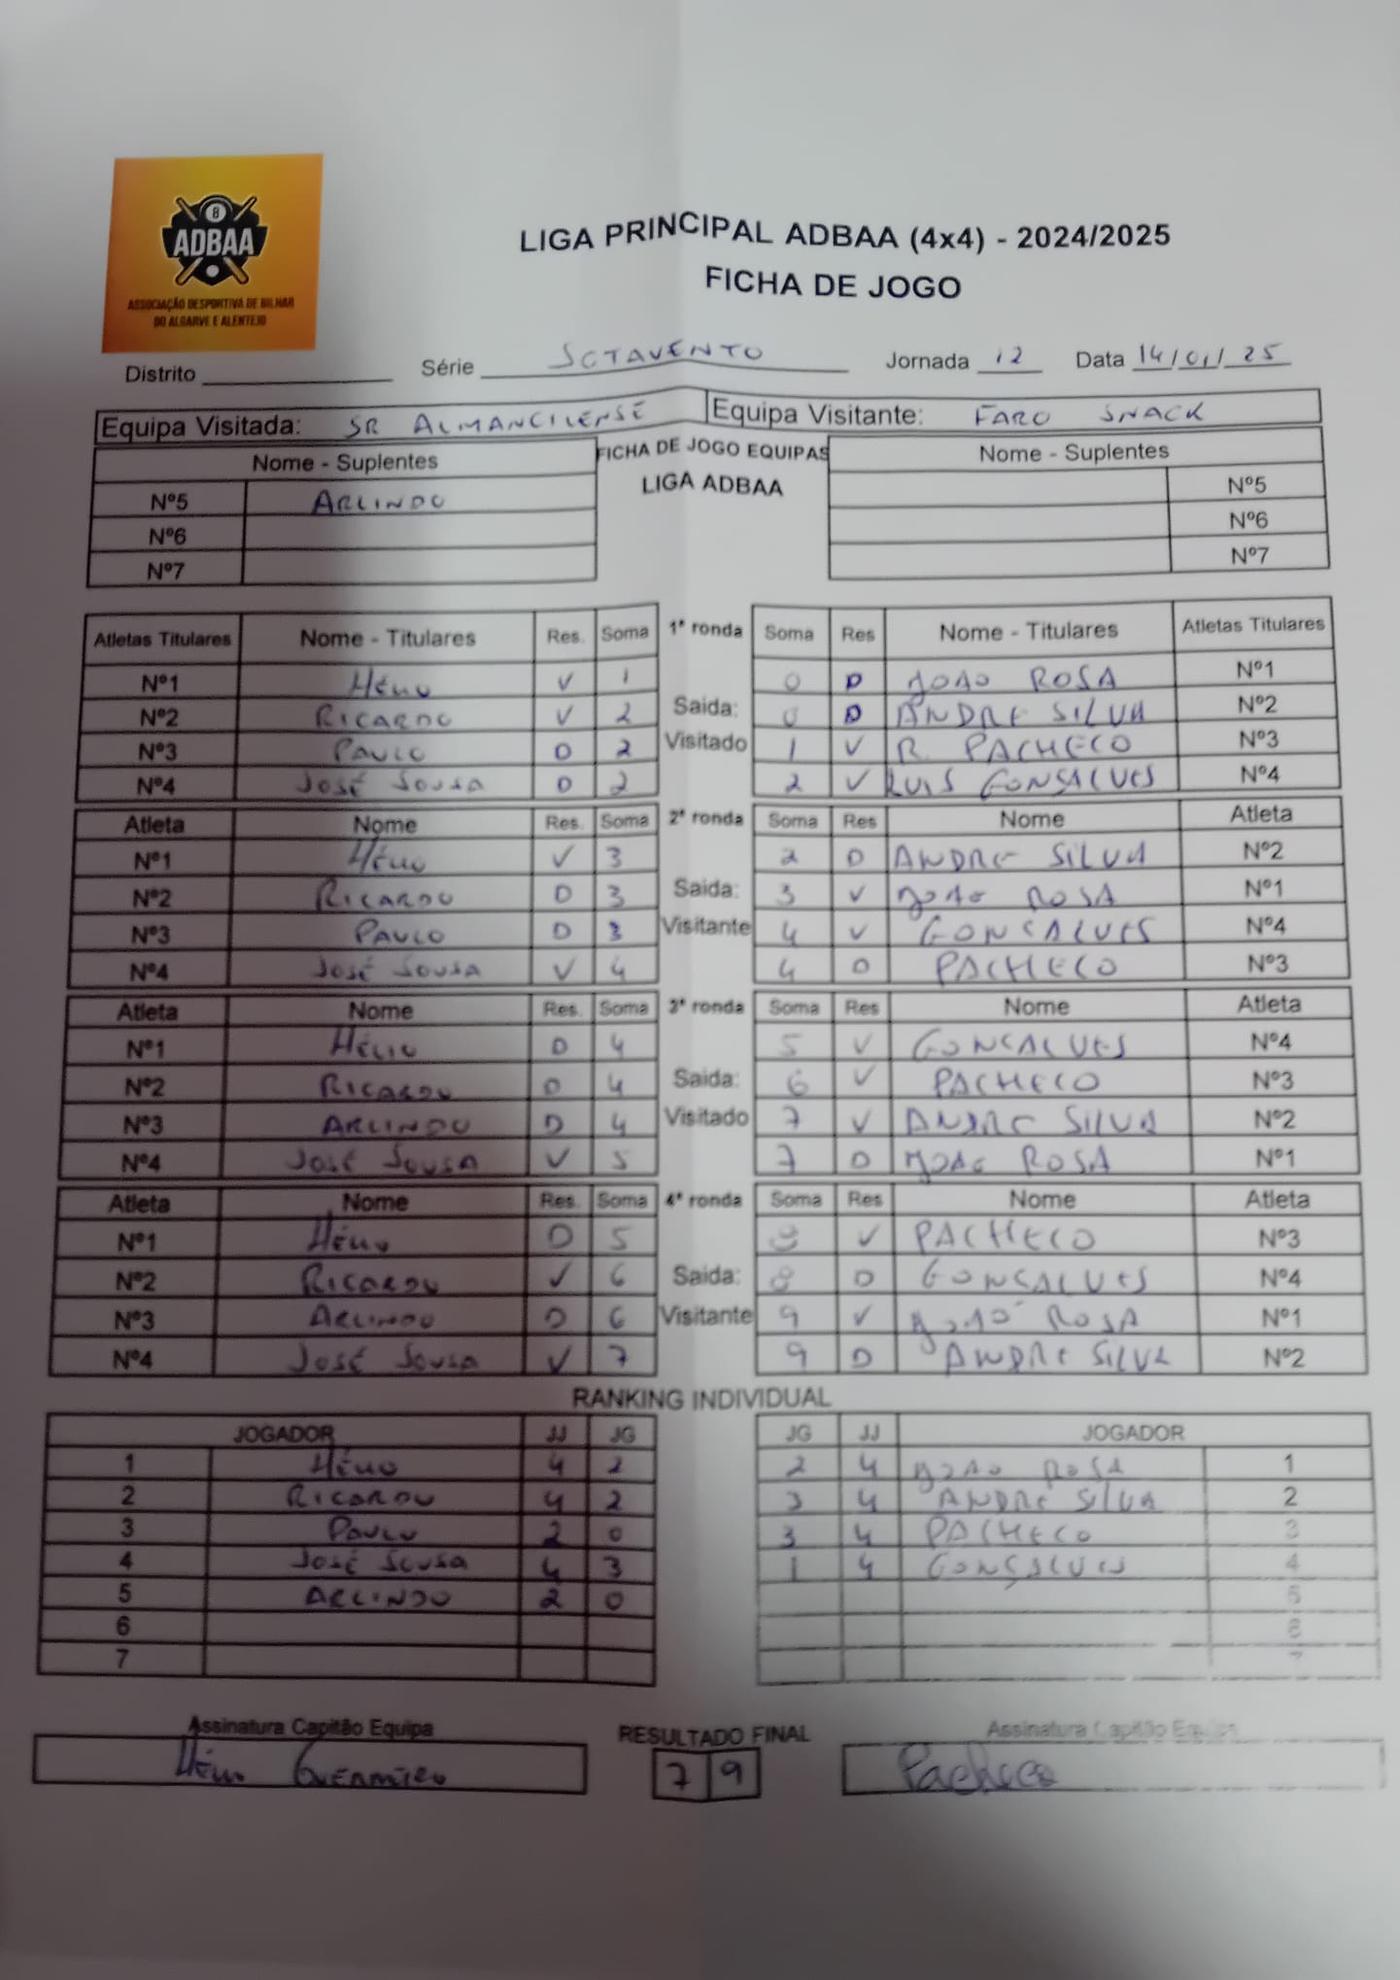 8
ADBAA
ASSOCIAÇÃO DESPORTIVA DE BILHAR
DO ALGARVE E ALENTEJO
LIGA PRINCIPAL ADBAA (4x4) - 2024/2025
FICHA DE JOGO
Distrito Série SOTAVENTO Jornada 12 Data 14/01/25
Equipa Visitada: SR ALMANCILENSE Equipa Visitante: FARO SNACK
Nome - Suplentes FICHA DE JOGO EQUIPAS Nome - Suplentes
LIGA ADBAA
Nº5 ARLINDO Nº5
Nº6 Nº6
Nº7 Nº7
Atletas Titulares Nome - Titulares Res. Soma 1ª ronda Soma Res Nome - Titulares Atletas Titulares
Nº1 HÉLIO V 1 0 D JOAO ROSA Nº1
Nº2 RICARDO V 2 Saida: 0 D ANDRE SILVA Nº2
Nº3 PAULO D 2 Visitado 1 V R. PACHECO Nº3
Nº4 JOSÉ SOUSA D 2 2 V LUIS GONSALVES Nº4
Atleta Nome Res. Soma 2ª ronda Soma Res Nome Atleta
Nº1 HÉLIO V 3 2 D ANDRE SILVA Nº2
Nº2 RICARDO D 3 Saida: 3 V JOAO ROSA Nº1
Nº3 PAULO D 3 Visitante 4 V GONCALVES Nº4
Nº4 JOSÉ SOUSA V 4 4 D PACHECO Nº3
Atleta Nome Res. Soma 3ª ronda Soma Res Nome Atleta
Nº1 HÉLIO D 4 5 V GONCALVES Nº4
Nº2 RICARDO D 4 Saida: 6 V PACHECO Nº3
Nº3 ARLINDO D 4 Visitado 7 V ANDRE SILVA Nº2
Nº4 JOSÉ SOUSA V 5 7 D JOAO ROSA Nº1
Atleta Nome Res. Soma 4ª ronda Soma Res Nome Atleta
Nº1 HÉLIO D 5 8 V PACHECO Nº3
Nº2 RICARDO V 6 Saida: 8 D GONCALVES Nº4
Nº3 ARLINDO D 6 Visitante 9 V JOAO ROSA Nº1
Nº4 JOSÉ SOUSA V 7 9 D ANDRE SILVA Nº2
RANKING INDIVIDUAL
JOGADOR JJ JG JG JJ JOGADOR
1 HÉLIO 4 2 2 4 JOAO ROSA 1
2 RICARDO 4 2 3 4 ANDRE SILVA 2
3 PAULO 2 0 3 4 PACHECO 3
4 JOSÉ SOUSA 4 3 1 4 GONÇALVES 4
5 ARLINDO 2 0 5
6 6
7 7
Assinatura Capitão Equipa RESULTADO FINAL Assinatura Capitão Equipa
HÉLIO GUERREIRO 7 9 Pacheco